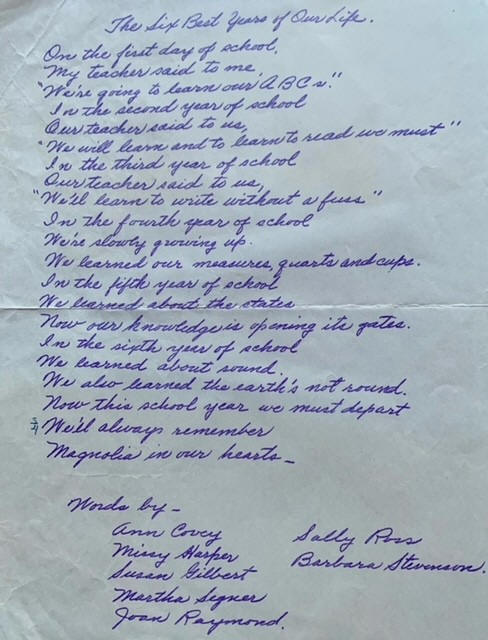 The Six Best Years of Our Life.
On the first day of school,
My teacher said to me,
"We're going to learn our A B C's."
In the second year of school
Our teacher said to us,
"We will learn and to learn to read we must"
In the third year of school
Our teacher said to us,
"We'll learn to write without a fuss"
In the fourth year of school
We're slowly growing up.
We learned our measures, quarts and cups.
In the fifth year of school
We learned about the states
Now our knowledge is opening its gates.
In the sixth year of school
We learned about sound.
We also learned the earth's not round.
Now this school year we must depart
We'll always remember
Magnolia in our hearts_
Words by -
Ann Covey
Missy Harper
Susan Gilbert
Martha Segner
Joan Raymond.
Sally Ross
Barbara Stevenson.